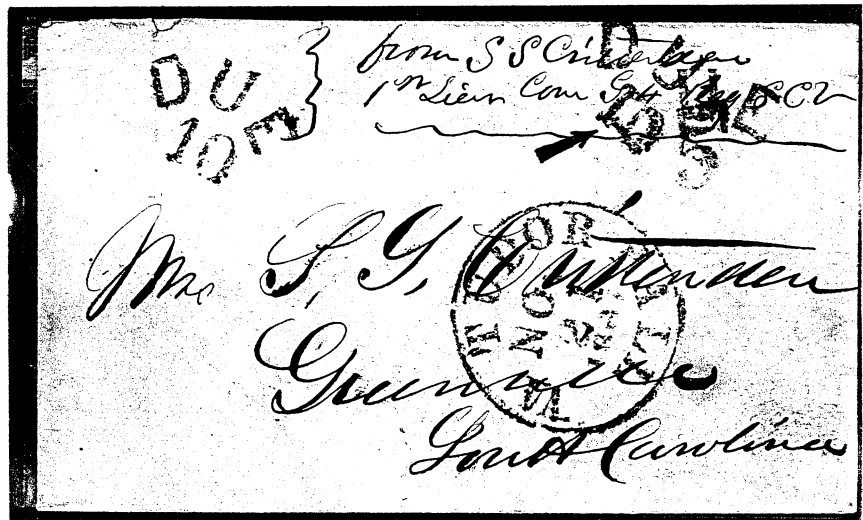 DUE
10
from S S Crittenden
1st Lieu Com 4th Reg SCV
DUE
5
TUDOR HALL
NOV
VA
Mrs S. G, Crittenden
Greenville
South Carolina